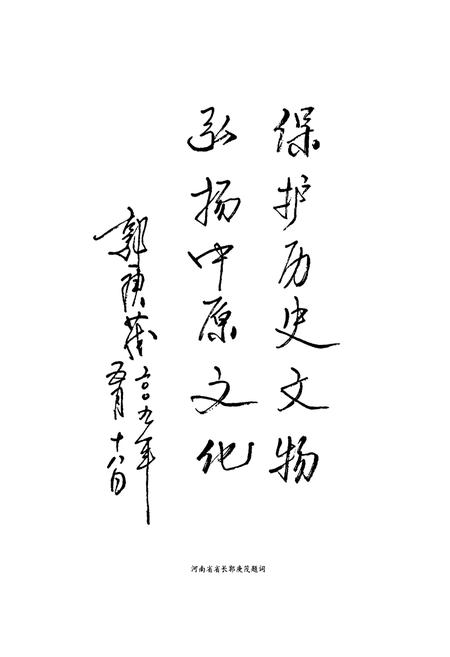 保护历史文物
弘扬中原文化
郭庚茂
二〇〇九年
五月十八日
河南省省长郭庚茂题词